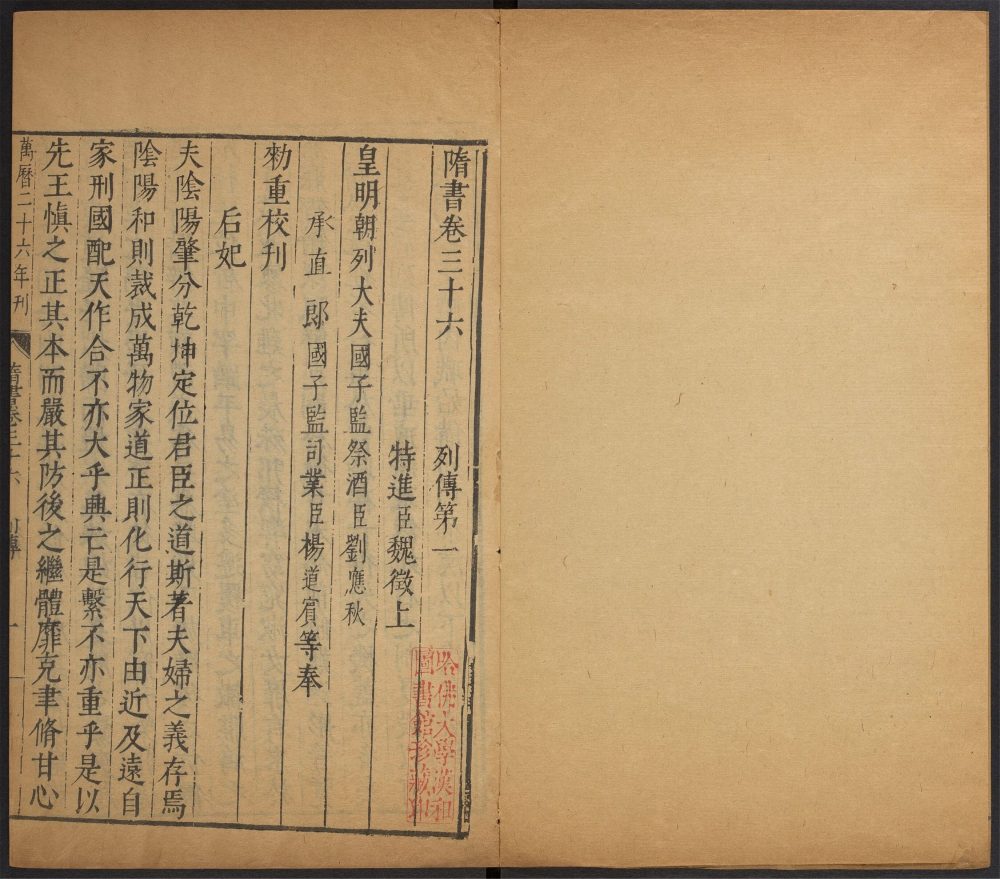 隋書卷三十六 列傳第一
特進臣魏徵上
皇明朝列大夫國子監祭酒臣劉應秋
承直郎國子監司業臣楊道賓等奉
勑重校刊
后妃
夫陰陽肇分乾坤定位君臣之道斯著夫婦之義存焉
陰陽和則裁成萬物家道正則化行天下由近及遠自
家刑國配天作合不亦大乎興亡是繫不亦重乎是以
先王慎之正其本而嚴其防後之繼體靡克聿脩甘心
萬曆二十六年刊
隋書卷三十六 列傳 一
哈佛大學漢和
圖書館珍藏印